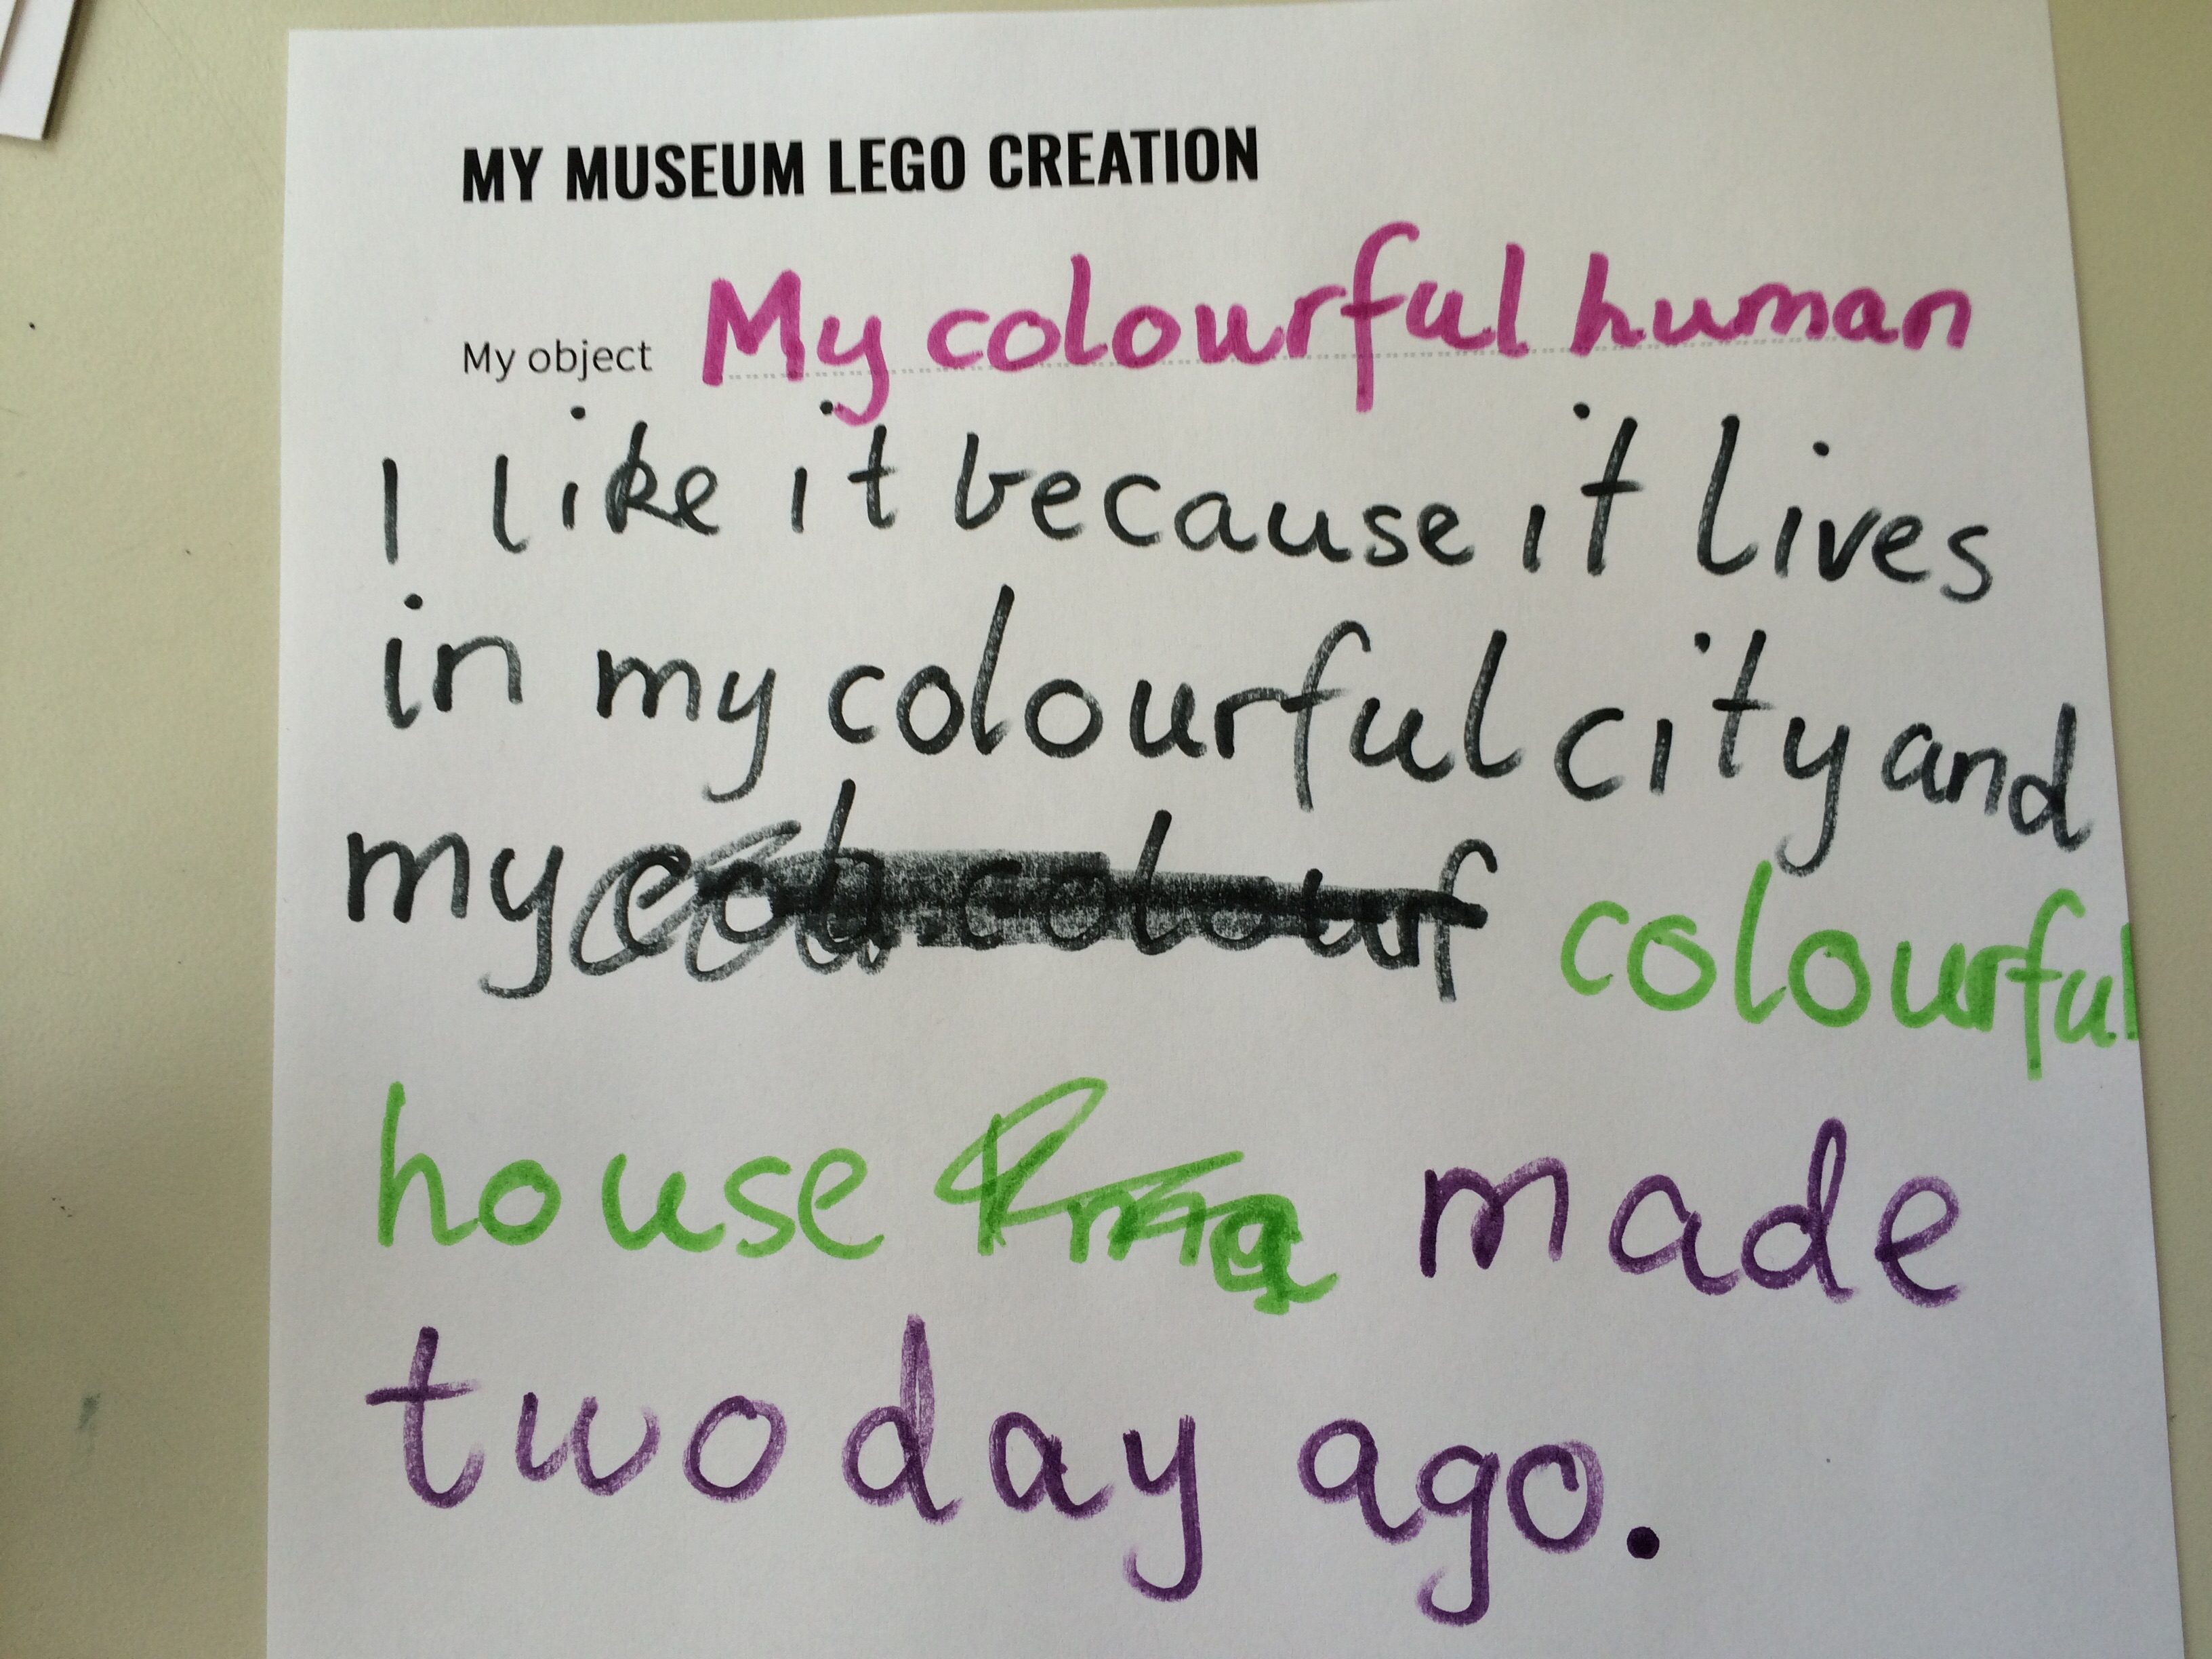 MY MUSEUM LEGO CREATION
My object My colourful human
I like it because it lives
in my colourful city and
my colourful
house made
two day ago.